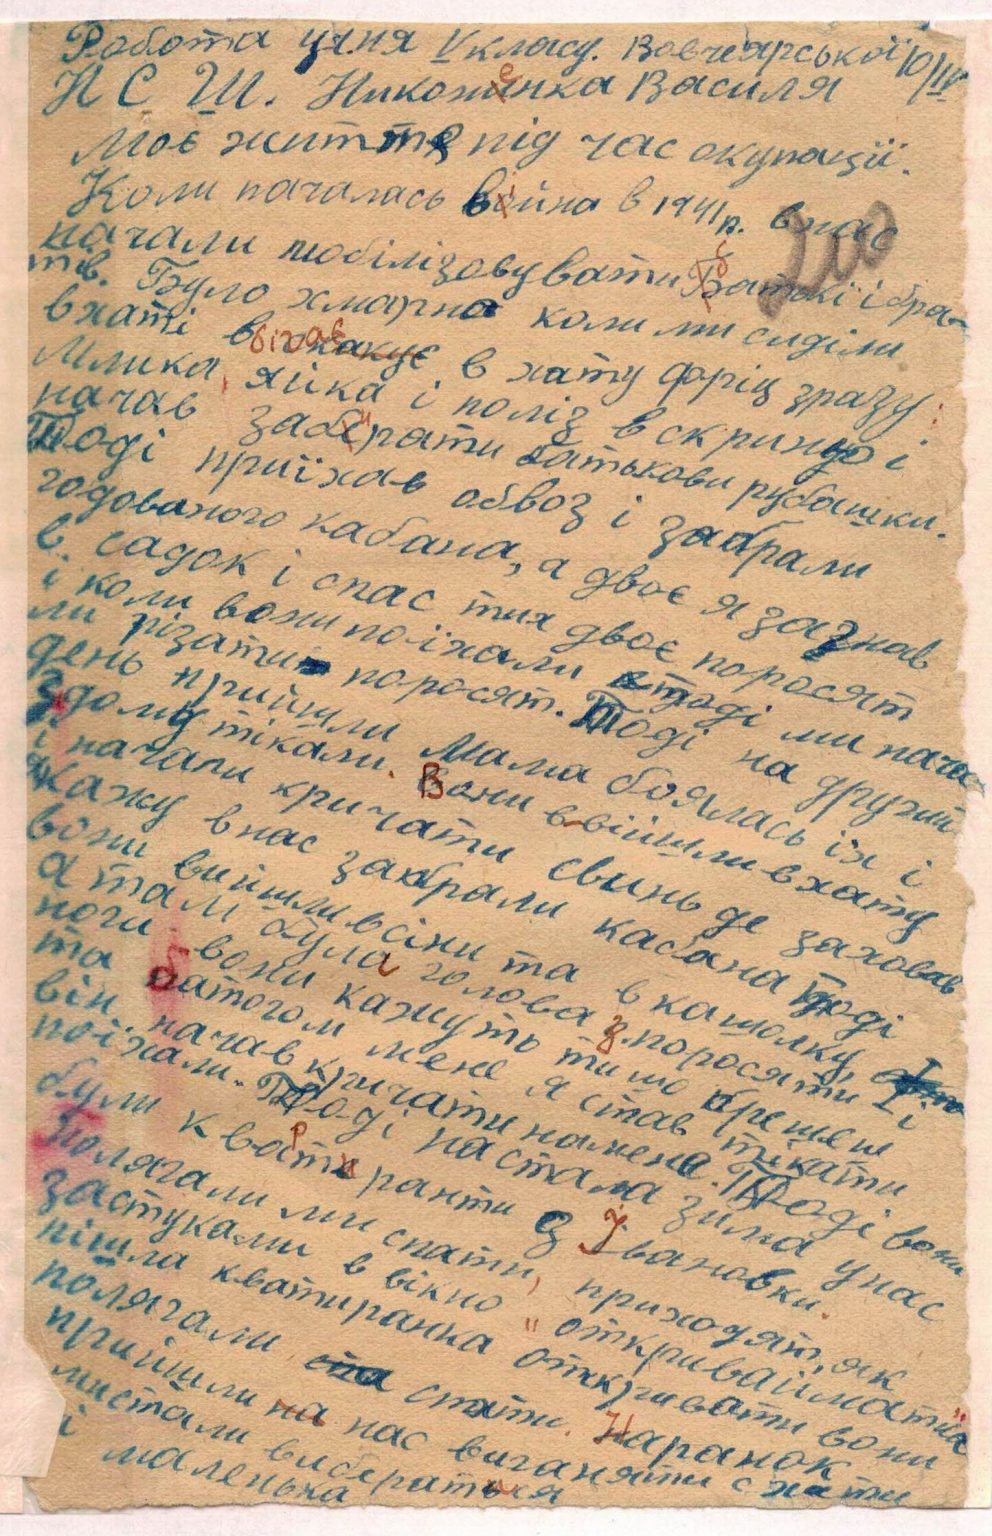 Робота учня V класу. Вовчеярської 10/IV
Н С Ш. Никоненка Василя
Моє життя під час окупації.
Коли началась война в 1941р. внас
начали мобілізовувати Батькі і бра-
тів. Було хмарно коли ми сиділи
вхаті вскакує в хату фріц зразу:
Млика, яйка і поліз вскриню і
начав заберати батькови рубашки.
Тоді приїхав обвоз і забрали
годованого кабана, а двоє я загнав
в садок і спас тих двоє поросят
і коли вони поїхали тоді ми нача
ли різати поросят. Тоді на другий
день прийшли Мама боялась їх і
здому тікали. Вони ввійшли вхату
і начали кричати свинь де заховав
я кажу внас забрали кабана тоді
вони вийшли всіни та в кашолку,
а там була голова з поросяти і
ноги вони кажуть ти шо брешеш
та батогом мене я став тікати
він начав кричати намене. Тоді вони
поїхали. Тоді настала зима унас
були квартиранти з Івановки.
полягали ми спати, приходят, як
застукали в вікно "откривай матка"
пішла кватиранка откривати вони
полягали спати. Наранок
прийшли нас виганяти с хати
мистали вибератися
і маленька